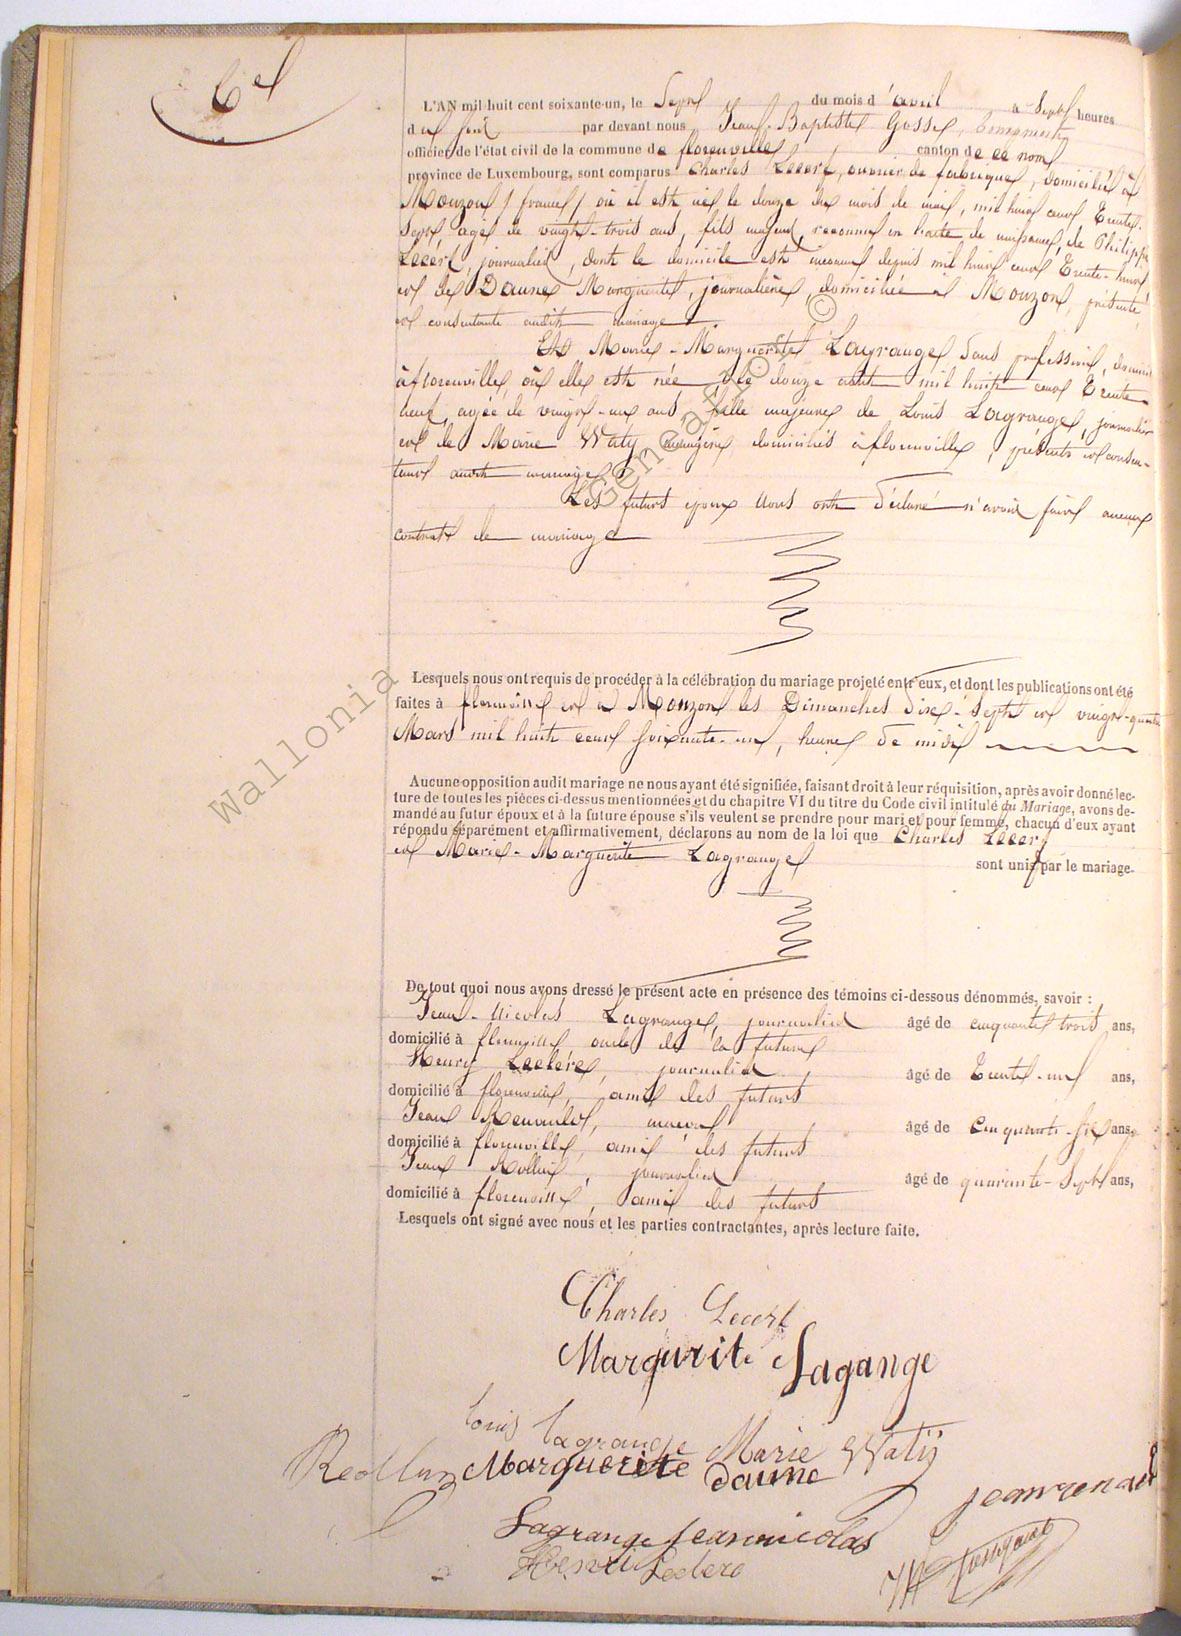 6e
L'AN mil huit cent soixante-un, le Sept du mois d'avril à Sept heures
du soir par devant nous Jean-Baptiste Gosse, Bourgmestre
officier de l'état civil de la commune de florenville canton de ce nom
province de Luxembourg, sont comparus Charles Lecerf, ouvrier de fabrique, domicilié à
Mouzon (france) où il est né le douze du mois de mai, mil huit cent Trente-
Sept, agé de vingt-trois ans, fils majeur, reconnu en l'acte de naissance, de Philippe
Lecerf, journalier, dont le domicile est inconnu depuis mil huit cent Trente-huit
et de Daune Marguerite, journalière, domiciliée à Mouzon, présente
et consentante audit mariage.
Et Marie-Marguerite Lagrange, Sans profession, domiciliée
à florenville, où elle est née le douze août mil huit cent Trente
neuf, agée de vingt-un ans, fille majeure de Louis Lagrange, journalier
et de Marie Waty, ménagère, domiciliés à florenville, présents et consen-
tant audit mariage.
Les futurs époux Nous ont déclaré n'avoir fait aucun
contrat de mariage
Lesquels nous ont requis de procéder à la célébration du mariage projeté entr'eux, et dont les publications ont été
faites à florenville et à Mouzon les Dimanches Dix-Sept et vingt-quatre
Mars mil huit cent soixante-un, heure de midi
Aucune opposition audit mariage ne nous ayant été signifiée, faisant droit à leur réquisition, après avoir donné lec-
ture de toutes les pièces ci-dessus mentionnées et du chapitre VI du titre du Code civil intitulé du Mariage, avons de-
mandé au futur époux et à la future épouse s'ils veulent se prendre pour mari et pour femme, chacun d'eux ayant
répondu séparément et affirmativement, déclarons au nom de la loi que Charles Lecerf
et Marie-Marguerite Lagrange
sont unis par le mariage.
De tout quoi nous avons dressé le présent acte en présence des témoins ci-dessous dénommés, savoir :
Jean-Nicolas Lagrange, journalier âgé de cinquante trois ans,
domicilié à florenville oncle de la future
Henry Leclère, journalier, âgé de Trente-un ans,
domicilié à florenville, ami des futurs
Jean Renauld, maçon, âgé de Cinquante-six ans,
domicilié à florenville, ami des futurs
Jean journalier âgé de quarante-Sept ans,
domicilié à florenville, ami des futurs
Lesquels ont signé avec nous et les parties contractantes, après lecture faite.
Charles Lecerf
Margurite Lagange
Louis Lagrange Marie Watij
Marguerite daune
Lagrange jeannicolas
Henri Leclere
Wallonia Geneafrog ©